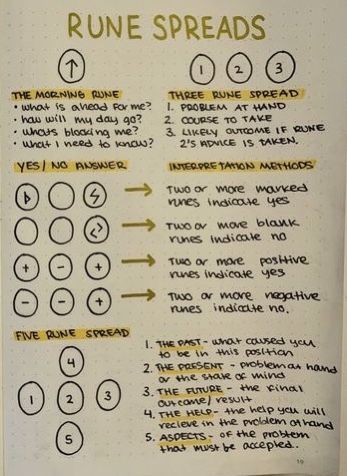 RUNE SPREADS
↑
1 2 3
THE MORNING RUNE
• what is ahead for me?
• how will my day go?
• what's blocking me?
• what I need to know?
THREE RUNE SPREAD
1. PROBLEM AT HAND
2. COURSE TO TAKE
3. LIKELY OUTCOME IF RUNE
2'S ADVICE IS TAKEN.
YES/NO ANSWER
INTERPRETATION METHODS
Two or more marked
runes indicate yes
Two or more blank
runes indicate no
+ - +
Two or more positive
runes indicate yes
- - +
Two or more negative
runes indicate no.
FIVE RUNE SPREAD
4
1 2 3
5
1. THE PAST - what caused you
to be in this position
2. THE PRESENT - problem at hand
or the state of mind
3. THE FUTURE - the final
outcome/result
4. THE HELP - the help you will
recieve in the problem at hand
5. ASPECTS - of the problem
that must be accepted.